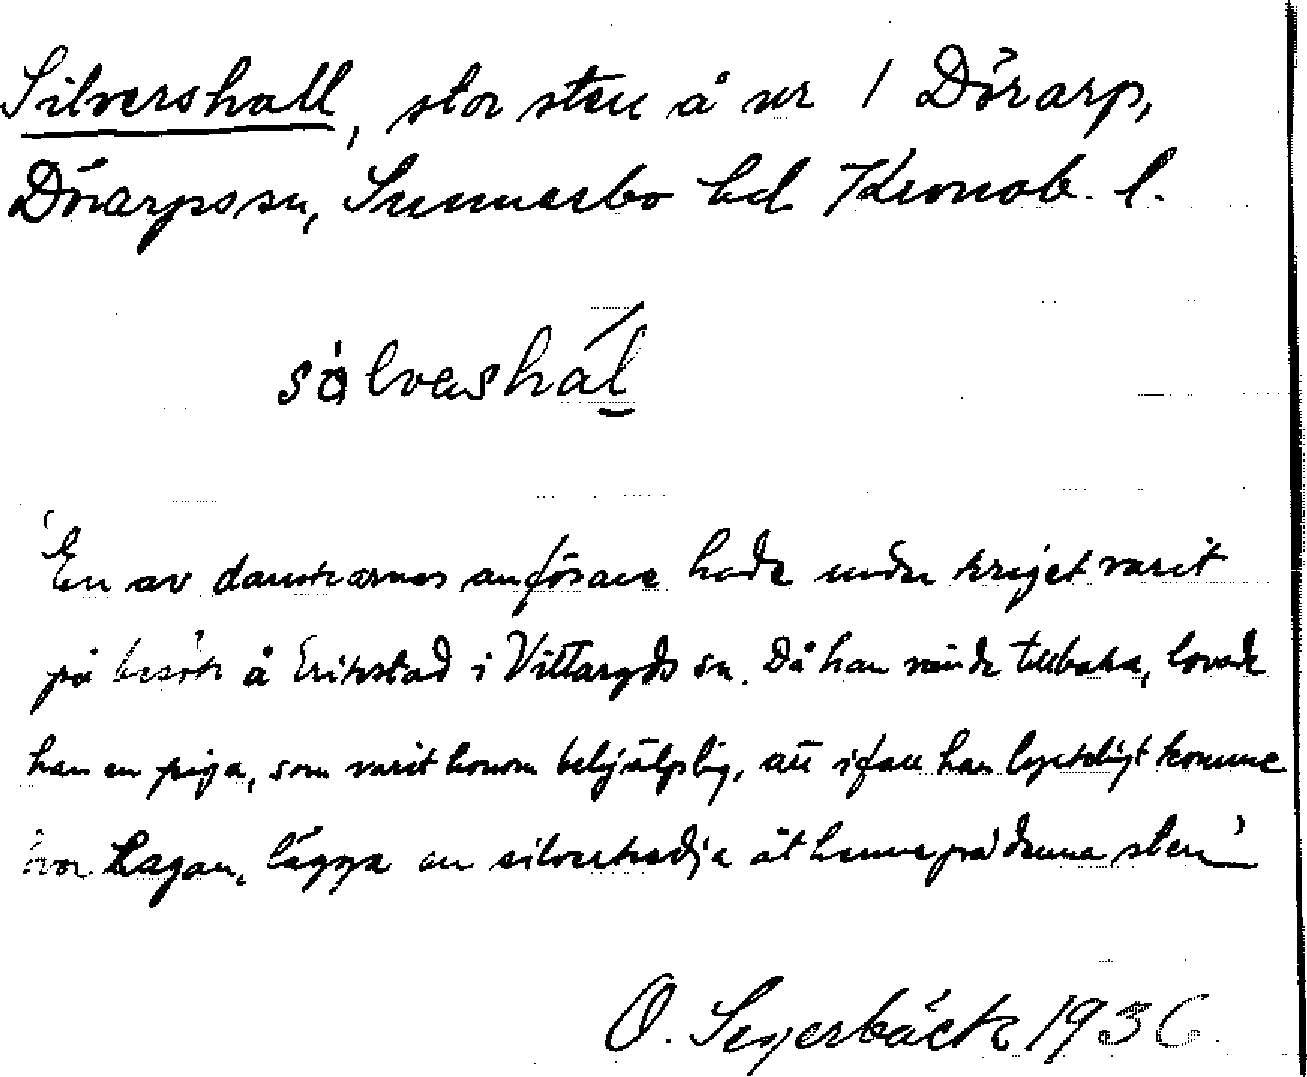 Silvershall, stor sten å nr 1 Dörarp,
Dörarps sn, Sunnerbo hd Kronob. l.
sålvashál
"En av danskarnas anförare hade under kriget varit
på besök å Erikstad i Vittaryds sn. Då han vände tillbaka, lovade
han en piga, som varit honom behjälplig, att ifall han lyckligt komme
över Lagan, lägga en silverkedja åt henne på denna sten"
O. Segerbäck 1936